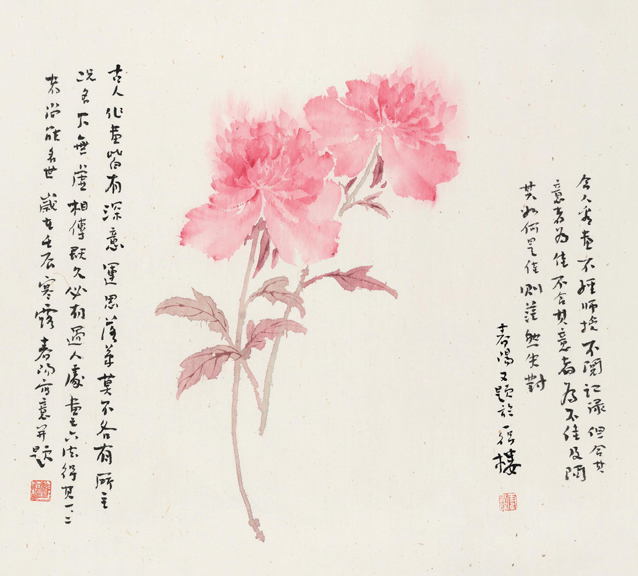 古人作畫皆有深意運思落筆莫不各有所主
況名下無虛相傳既久必有過人處畫之六法得其一二
者尚能名世 歲在壬辰寒露 春陽寫意並題
今人看畫不經師授不閱記录但合其
意者為佳不合其意者為不佳及問
其如何是佳則茫然失對
春陽又題於樓